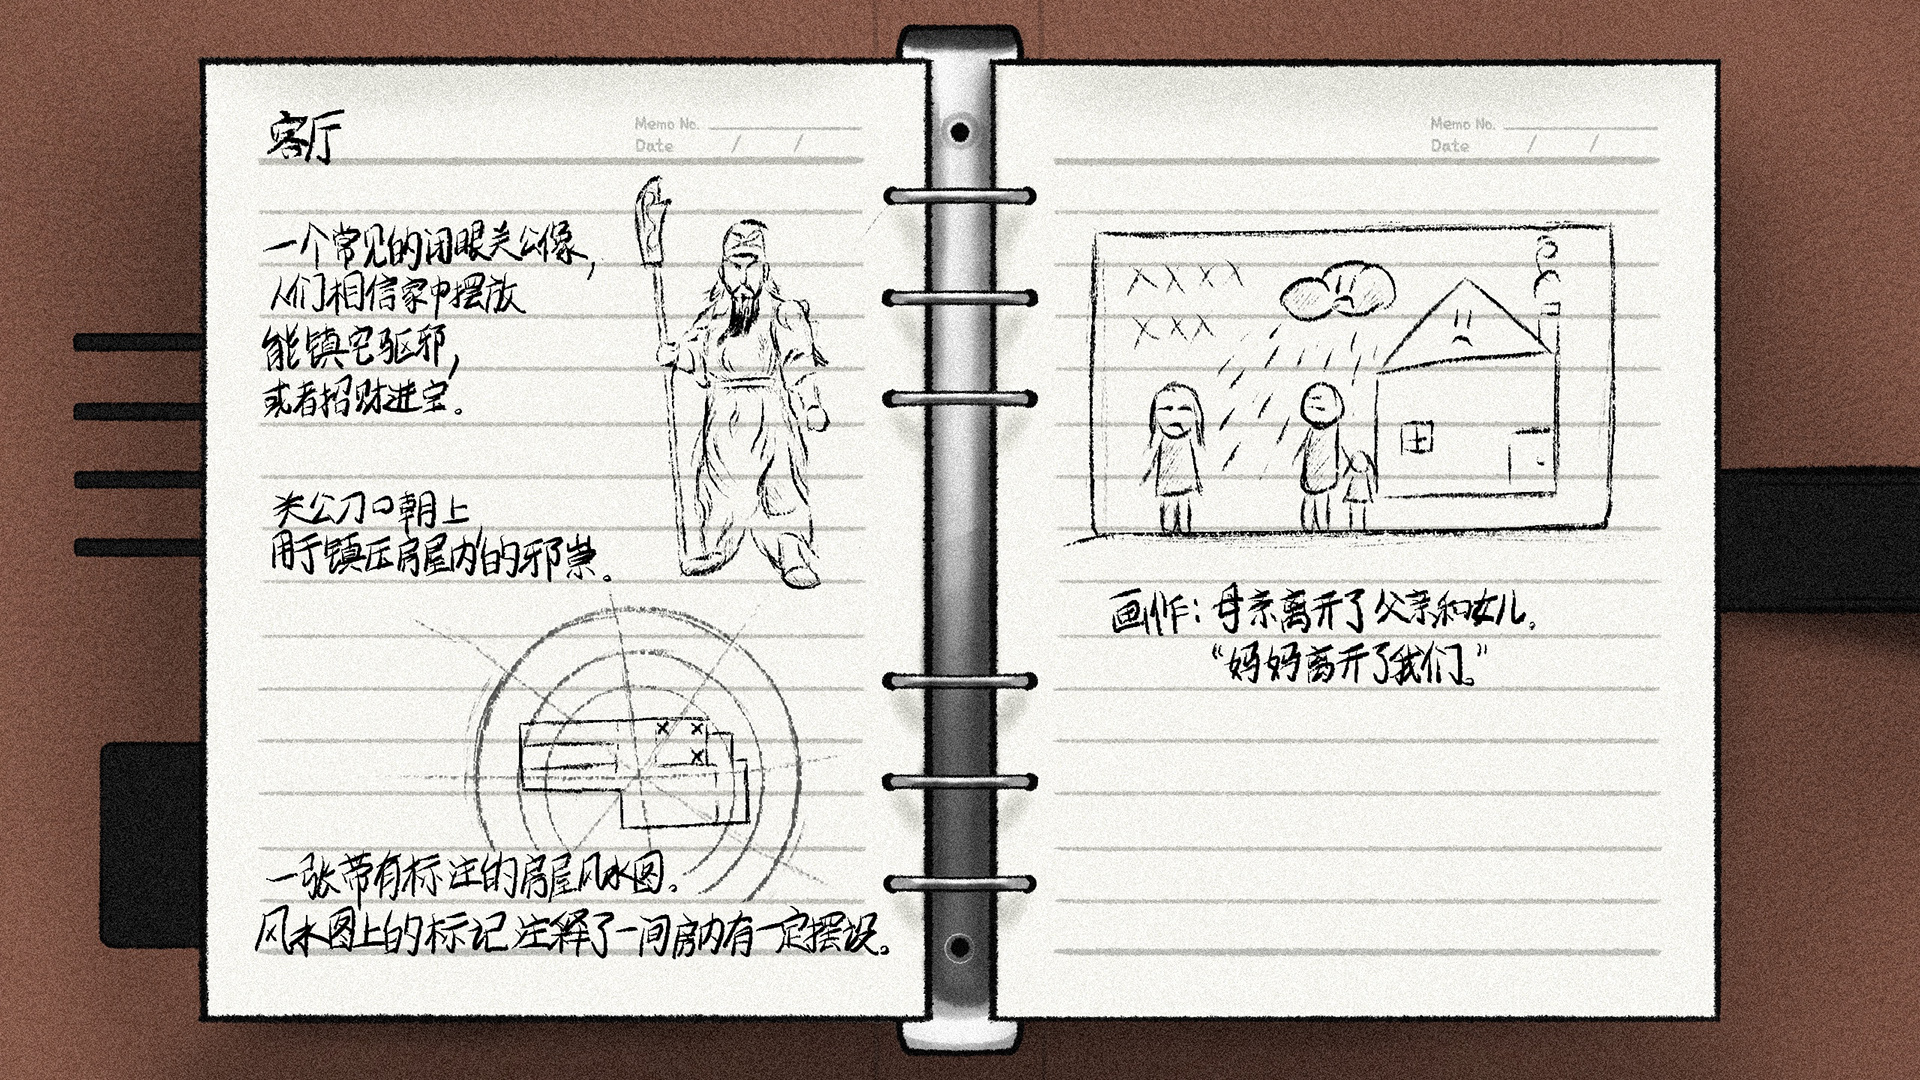 客厅
Memo No.
Date / /
一个常见的闭眼关公像,
人们相信家中摆放
能镇宅驱邪,
或者招财进宝。
关公刀口朝上
用于镇压房屋内的邪祟。
一张带有标注的房屋风水图。
风水图上的标记注释了一间房内有一定摆设。
Memo No.
Date / /
画作:母亲离开了父亲和女儿。
“妈妈离开了我们。”